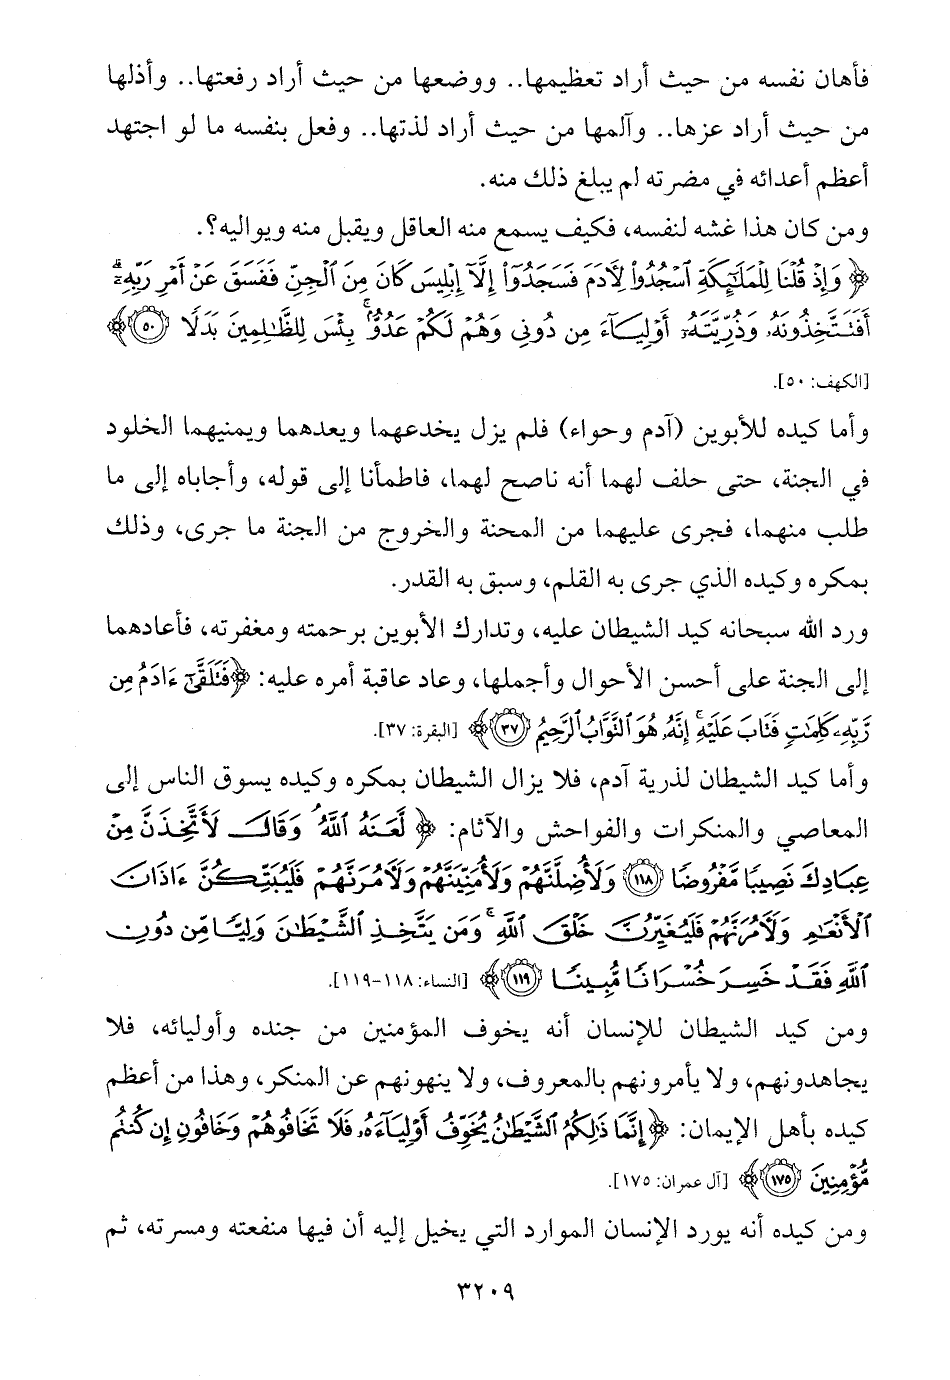 فأهان نفسه من حيث أراد تعظيمها.. ووضعها من حيث أراد رفعتها.. وأذلها
من حيث أراد عزها.. وآلمها من حيث أراد لذتها.. وفعل بنفسه ما لو اجتهد
أعظم أعدائه في مضرته لم يبلغ ذلك منه.
ومن كان هذا غشه لنفسه، فكيف يسمع منه العاقل ويقبل منه ويواليه؟.
﴿ وَإِذْ قُلْنَا لِلْمَلَٰٓئِكَةِ ٱسْجُدُوا۟ لِءَادَمَ فَسَجَدُوٓا۟ إِلَّآ إِبْلِيسَ كَانَ مِنَ ٱلْجِنِّ فَفَسَقَ عَنْ أَمْرِ رَبِّهِۦٓ ۗ
أَفَتَتَّخِذُونَهُۥ وَذُرِّيَّتَهُۥٓ أَوْلِيَآءَ مِن دُونِى وَهُمْ لَكُمْ عَدُوٌّۢ ۚ بِئْسَ لِلظَّٰلِمِينَ بَدَلًا ﴿٥٠﴾ ﴾
[الكهف: ٥٠].
وأما كيده للأبوين (آدم وحواء) فلم يزل يخدعهما ويعدهما ويمنيهما الخلود
في الجنة، حتى حلف لهما أنه ناصح لهما، فاطمأنا إلى قوله، وأجاباه إلى ما
طلب منهما، فجرى عليهما من المحنة والخروج من الجنة ما جرى، وذلك
بمكره وكيده الذي جرى به القلم، وسبق به القدر.
ورد الله سبحانه كيد الشيطان عليه، وتدارك الأبوين برحمته ومغفرته، فأعادهما
إلى الجنة على أحسن الأحوال وأجملها، وعاد عاقبة أمره عليه: ﴿فَتَلَقَّىٰٓ ءَادَمُ مِن
رَّبِّهِۦ كَلِمَٰتٍ فَتَابَ عَلَيْهِ ۚ إِنَّهُۥ هُوَ ٱلتَّوَّابُ ٱلرَّحِيمُ ﴿٣٧﴾ ﴾ [البقرة: ٣٧].
وأما كيد الشيطان لذرية آدم، فلا يزال الشيطان بمكره وكيده يسوق الناس إلى
المعاصي والمنكرات والفواحش والآثام: ﴿ لَّعَنَهُ ٱللَّهُ ۘ وَقَالَ لَأَتَّخِذَنَّ مِنْ
عِبَادِكَ نَصِيبًا مَّفْرُوضًا ﴿١١٨﴾ وَلَأُضِلَّنَّهُمْ وَلَأُمَنِّيَنَّهُمْ وَلَءَامُرَنَّهُمْ فَلَيُبَتِّكُنَّ ءَاذَانَ
ٱلْأَنْعَٰمِ وَلَءَامُرَنَّهُمْ فَلَيُغَيِّرُنَّ خَلْقَ ٱللَّهِ ۚ وَمَن يَتَّخِذِ ٱلشَّيْطَٰنَ وَلِيًّا مِّن دُونِ
ٱللَّهِ فَقَدْ خَسِرَ خُسْرَانًا مُّبِينًا ﴿١١٩﴾ ﴾ [النساء: ١١٨-١١٩].
ومن كيد الشيطان للإنسان أنه يخوف المؤمنين من جنده وأوليائه، فلا
يجاهدونهم، ولا يأمرونهم بالمعروف، ولا ينهونهم عن المنكر، وهذا من أعظم
كيده بأهل الإيمان: ﴿إِنَّمَا ذَٰلِكُمُ ٱلشَّيْطَٰنُ يُخَوِّفُ أَوْلِيَآءَهُۥ فَلَا تَخَافُوهُمْ وَخَافُونِ إِن كُنتُم
مُّؤْمِنِينَ ﴿١٧٥﴾ ﴾ [آل عمران: ١٧٥].
ومن كيده أنه يورد الإنسان الموارد التي يخيل إليه أن فيها منفعته ومسرته، ثم
٣٢٠٩